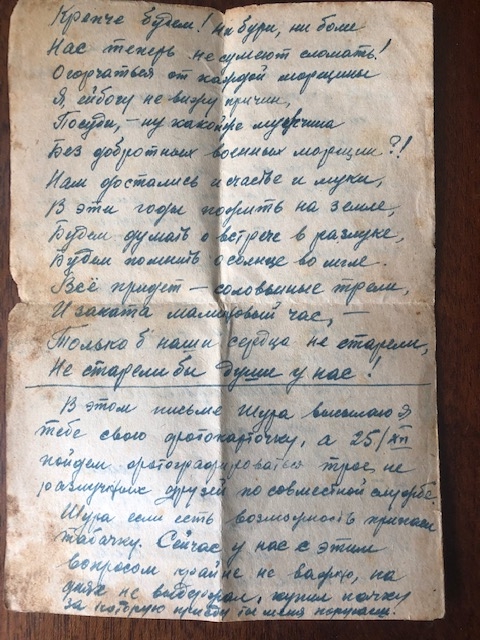 Крепче будем! Ни бури, ни боли
Нас теперь не сумеют сломать!
Огорчаться от каждой морщины
Я, ейбогу не вижу причин,
Посуди, – ну какой же мужчина
Без добротных военных морщин?!
Нам достались и счастье и муки,
В эти годы на земле,
Будем думать о встрече в разлуке,
Будем помнить о солнце во мгле.
Всё придет – соловьиные трели,
И заката малиновый час, –
Только б наши сердца не старели,
Не старели бы души у нас!
В этом письме Шура высылаю я
тебе свою фотокарточку, а 25/XII
пойдем фотографироваться трое, не
разлучных друзей по совместной службе.
Шура если есть возможность пришли
табачку. Сейчас у нас с этим
вопросом крайне не важно, на
днях не выдержал, купил пачку
за которую приеду ты меня поругаеш.